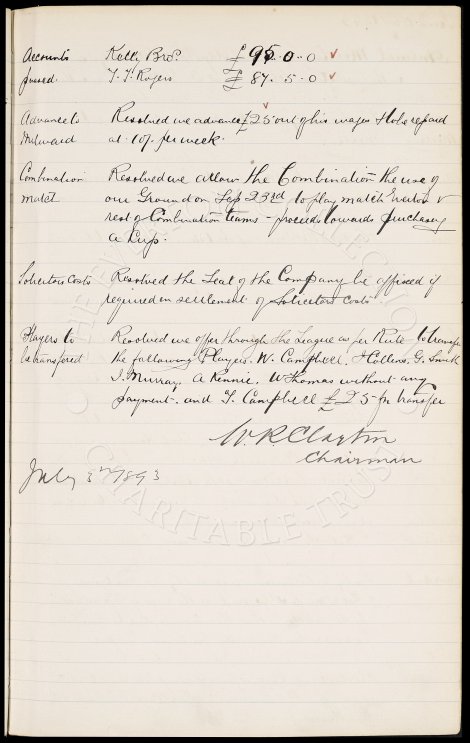 Accounts Kelly Bros. £95.0.0 ✓
passed. T. J. Rogers £87.5.0 ✓
Advance to Resolved we advance £25 out of his wages & to be repaid
Milward at 10/- per week.
Combination Resolved we allow the Combination the use of
Match our Ground on Sep 23rd to play match Everton v
rest of Combination teams - proceeds towards purchasing
a Cup.
Solicitors Costs Resolved the Seal of the Company be affixed if
required in settlement of Solicitors Costs.
Players to Resolved we offer through the League as per Rule to transfer
be transferred the following Players. W. Campbell. Collins. G. Smith
J. Murray, A Rennie. W Thomas without any
payment. and Campbell £25 for transfer
W. R. Clayton
Chairman
July 3rd 1893
CHARITABLE TRUST